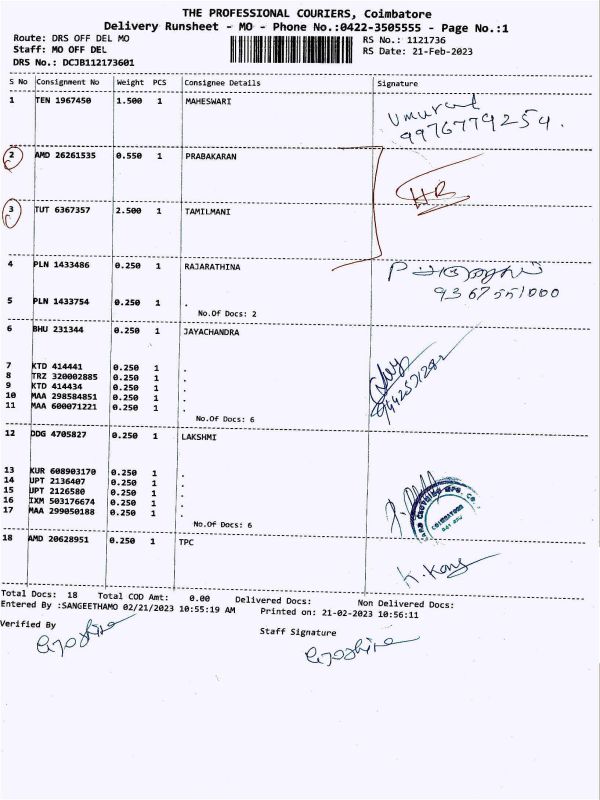 THE PROFESSIONAL COURIERS, Coimbatore
Delivery Runsheet - MO - Phone No.:0422-3505555 - Page No.:1
Route: DRS OFF DEL MO RS No.: 1121736
Staff: MO OFF DEL RS Date: 21-Feb-2023
DRS No.: DCJB112173601
S No Consignment No Weight PCS Consignee Details Signature
1 TEN 1967450 1.500 1 MAHESWARI
9976779254.
2 AMD 26261535 0.550 1 PRABAKARAN
HB
3 TUT 6367357 2.500 1 TAMILMANI
4 PLN 1433486 0.250 1 RAJARATHINA
9367551000
5 PLN 1433754 0.250 1 .
No.Of Docs: 2
6 BHU 231344 0.250 1 JAYACHANDRA
7 KTD 414441 0.250 1 .
8 TRZ 320002885 0.250 1 .
9 KTD 414434 0.250 1 .
10 MAA 298584851 0.250 1 .
11 MAA 600071221 0.250 1 .
No.Of Docs: 6
12 DDG 4705827 0.250 1 LAKSHMI
13 KUR 608903170 0.250 1 .
14 UPT 2136407 0.250 1 .
15 UPT 2126580 0.250 1 .
16 IXM 503176674 0.250 1 .
17 MAA 299050188 0.250 1 .
No.Of Docs: 6
COIMBATORE
18 AMD 20628951 0.250 1 TPC
Total Docs: 18 Total COD Amt: 0.00 Delivered Docs: Non Delivered Docs:
Entered By :SANGEETHAMO 02/21/2023 10:55:19 AM Printed on: 21-02-2023 10:56:11
Verified By Staff Signature